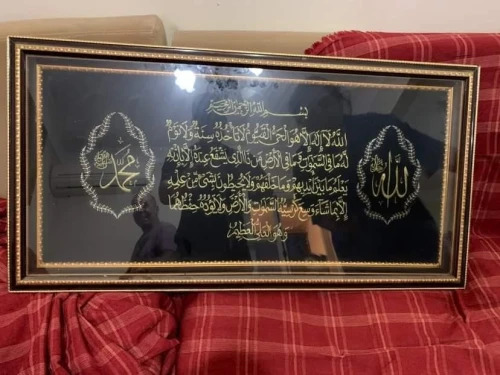 بسم الله الرحمن الرحيم
الله لا إله إلا هو الحي القيوم لا تأخذه سنة ولا نوم
له ما في السموات وما في الأرض من ذا الذي يشفع عنده إلا بإذنه
يعلم ما بين أيديهم وما خلفهم ولا يحيطون بشيء من علمه
إلا بما شاء وسع كرسيه السموات والأرض ولا يؤده حفظهما
وهو العلي العظيم
الله
محمد